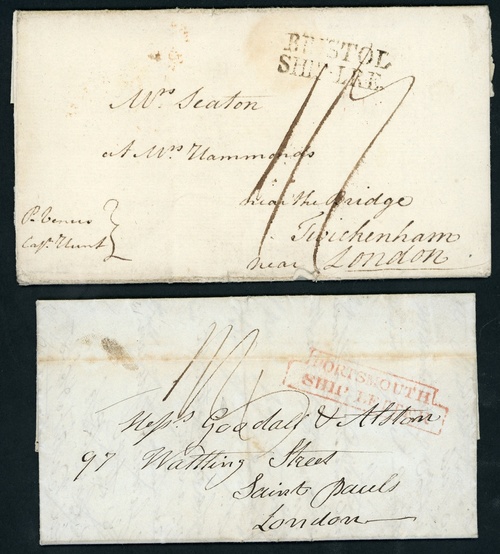 BRISTOL
SHIP LRE
Mrs Seaton
at Mrs Hammonds
near the Bridge
Twickenham
near London
Capt. Hunt
PORTSMOUTH
SHIP LE
Messrs Goodall & Alston
97 Watling Street
Saint Pauls
London